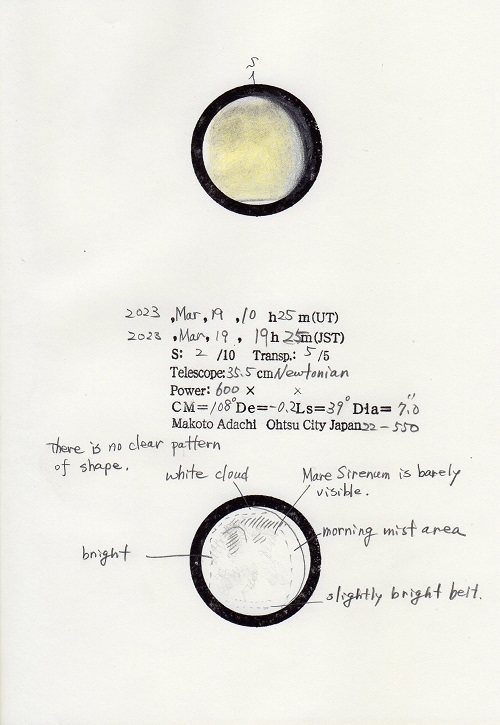 S
2023 ,Mar, 19 ,10 h25m(UT)
2023 ,Mar, 19 , 19h 25m(JST)
S: 2 /10 Transp.: 5 /5
Telescope: 35.5 cm Newtonian
Power: 600 × ×
CM=108° De=-0.2 Ls=39° Dia= 7.0"
Makoto Adachi Ohtsu City Japan 22-550
There is no clear pattern
of shape.
white cloud
Mare Sirenum is barely
visible.
morning mist area
bright
slightly bright belt.